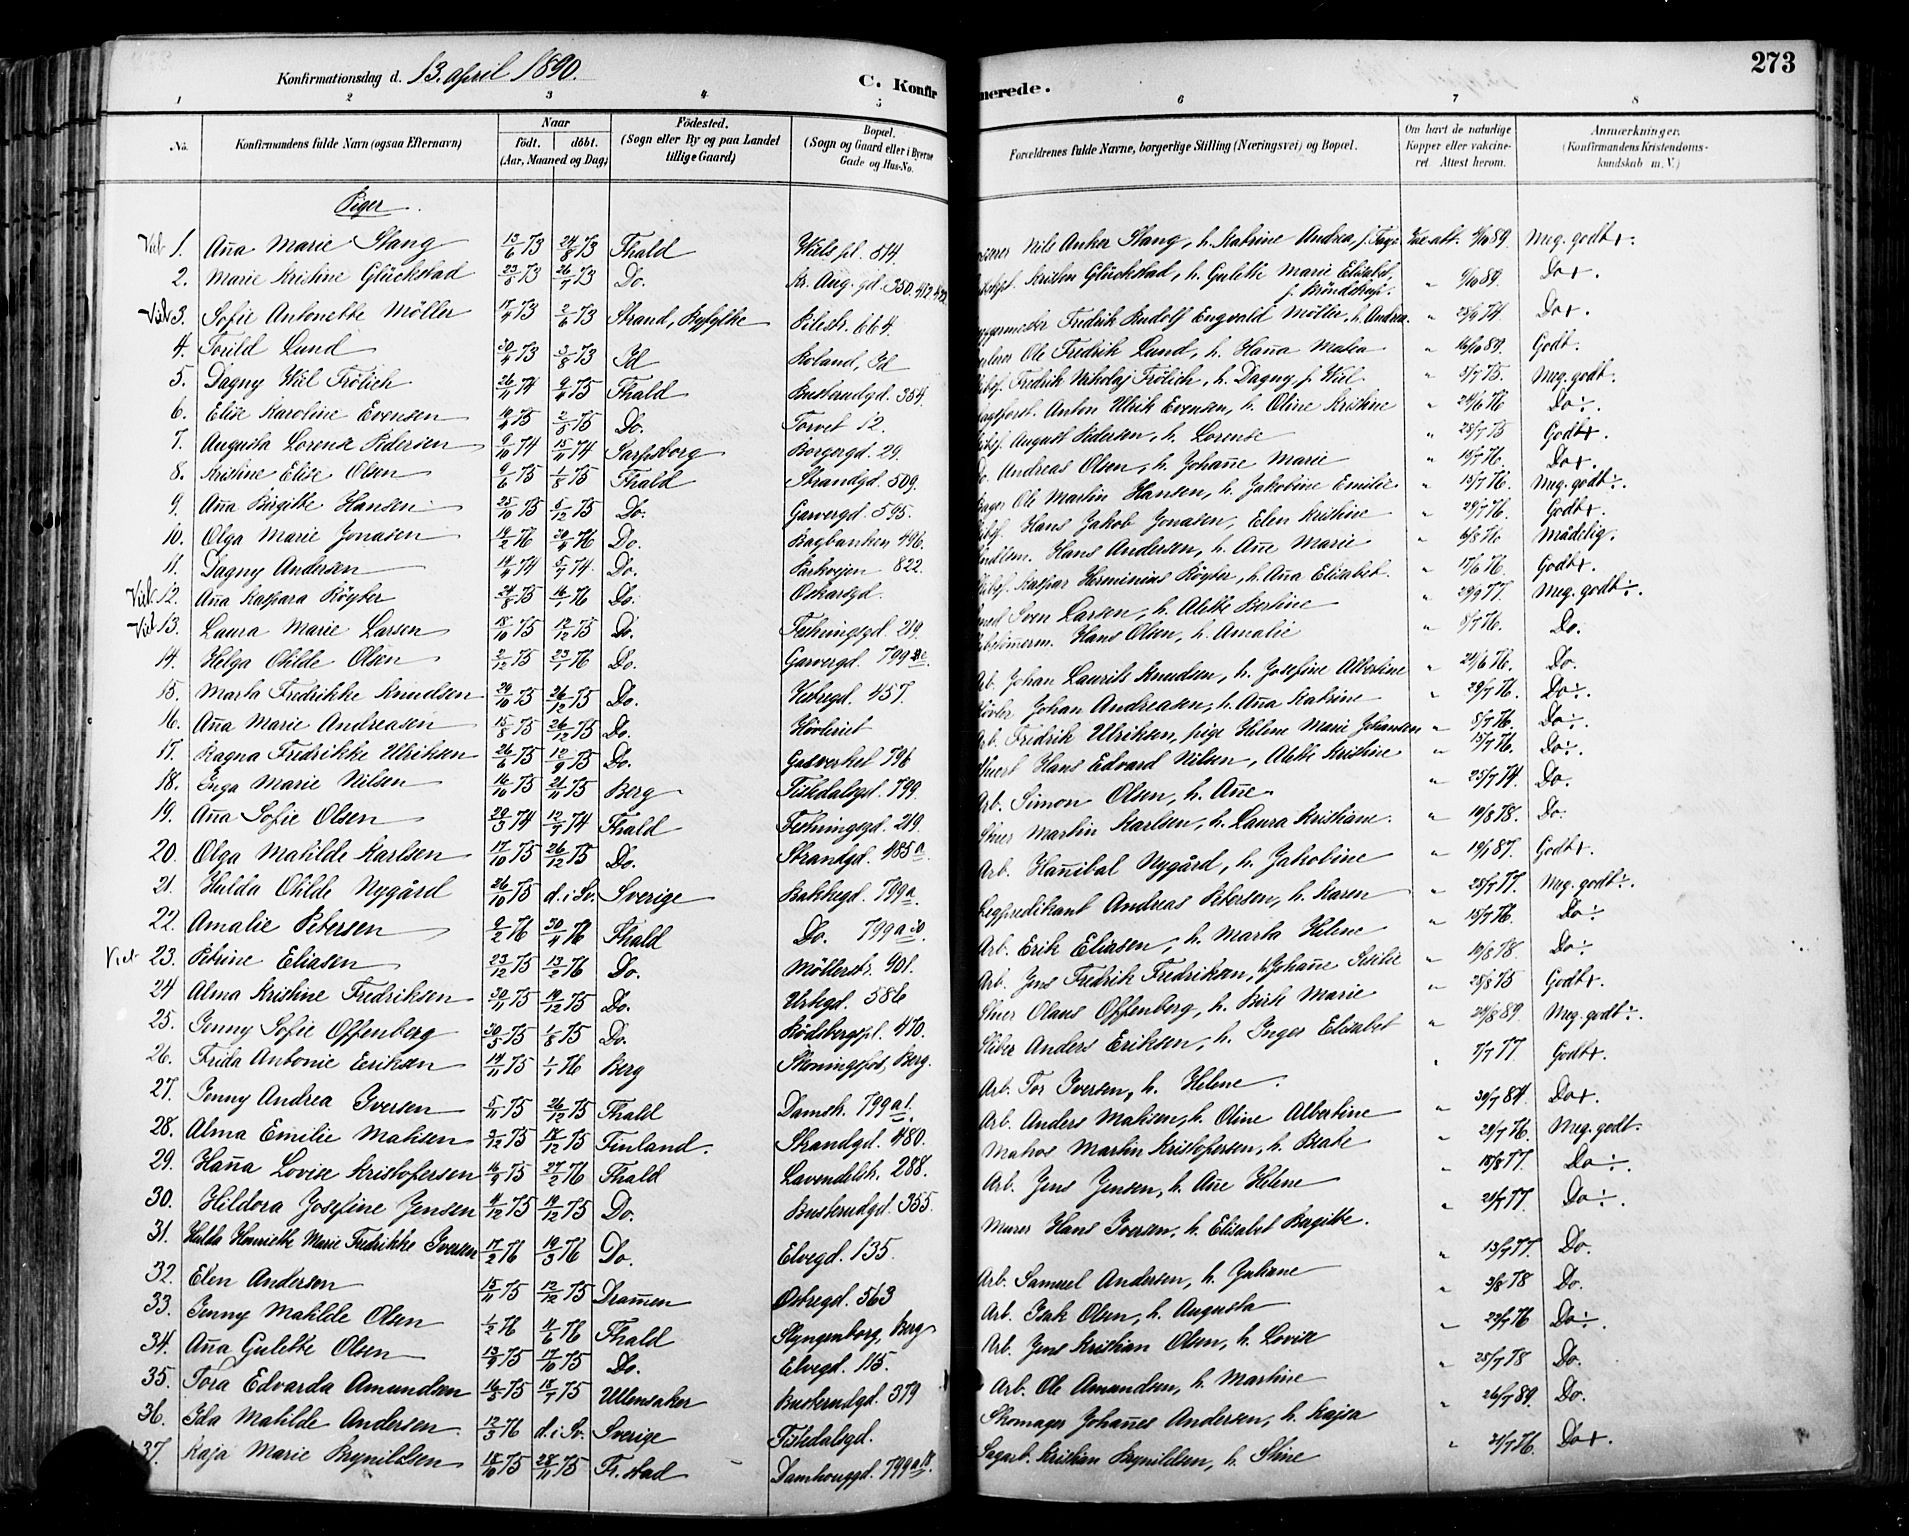 273
Konfirmationsdag d. 13. april 1890.
C. Konfirmerede.
1 2 3 4 5 6 7 8
No. Konfirmandens fulde Navn (ogsaa Efternavn) Naar födt. döbt. (Aar, Maaned og Dag) Födested. (Sogn eller By og paa Landet tillige Gaard) Bopæl. (Sogn og Gaard eller i Byerne Gade og Hus-No. Forældrenes fulde Navne, borgerlige Stilling (Næringsvei) og Bopæl. Om havt de naturlige Kopper eller vaccineret Attest herom. Anmærkninger. (Konfirmandens Kristendomskundskab m. V.)
Piger.
1. Aña Marie Stang 13/6 73 24/8 73 Fhald Wiels pl. 514 Nils Anker Stang, h. Katrine Andrea, f. Vac. att. 89 Meg. godt
2. Marie Kristine Glückstad 23/5 73 26/7 73 Do. Kr. Aug. gd. 350. Kristen Glückstad, h. Gulette Marie Elisabet, 89. Do
3. Sofie Antonette Möller 17/4 73 2/6 73 Strand, Ryfylke Pilestr. 664. Fredrik Rudolf Engvald Möller, h. Andrea. 74 Do
4. Torild Lund 30/4 73 3/8 73 Id Roland, Id Ole Fredrik Lund, h. Haña Matea 16/10 89. Godt.
5. Dagny Wiel Frölich 26/11 74 9/4 75 Fhald Buskrudgd. 354 Fredrik Nikolaj Frölich, h. Dagny f. Wiel 75. Meg. godt.
6. Elise Karoline Evensen 19/4 75 2/5 75 Do. Torvet 12. Anton Ulrik Evensen, h. Oline Kristine 76 Do
7. Augusta Lorense Pedersen 9/10 74 15/11 74 Sarpsborg Borgergd. 29. August Pedersen, h. Lorense 75 Godt
8. Kristine Elise Olsen 9/6 75 1/8 75 Fhald Strandgd. 509. Andreas Olsen, h. Johañe Marie 76. Do
9. Aña Birgitte Hansen 25/10 75 5/12 75 Do. Garvergd. 595. Ole Martin Hansen, h. Jakobine Emilie 13/7 76. Meg. godt
10. Olga Marie Jonasen 19/2 76 76 Do. Bagbanken 496. Hans Jakob Jonasen, Elen Kristine 76. Godt
11. Dagny Andersen 14/4 74 5/7 74 Do. Parkvejen 822. Hans Andersen, h. Añe Marie 6/8 76 Mådelig.
12. Aña Kaspara Röyter 24/8 75 16/1 76 Do. Oskarsgd. Kaspar Herminius Röyter, h. Aña Elisabet. 17/6 76 Godt
13. Laura Marie Larsen 18/10 75 12/12 75 Do. Festningsgd. 219. Sven Larsen, h. Alette Bertine 29/9 77. Meg. godt
14. Helga Otilde Olsen 2/12 75 23/1 76 Do. Garvergd. 799 Hans Olsen, h. Amalie 8/7 76. Do.
15. Marta Fredrikke Knudsen 29/10 75 26/12 75 Do. Vestregd. 457. Arb. Johan Laurits Knudsen, h. Josefine Albertine 76. Do.
16. Aña Marie Andreasen 15/8 75 26/12 75 Do. Hövleriet Hövler Johan Andreasen, h. Aña Katrine 29/7 76. Do
17. Ragna Fredrikke Ulriksen 26/6 75 12/9 75 Do. Gasverket 796 Arb. Fredrik Ulriksen, pige Helene Marie Johansen 8/7 76. Do
18. Inga Marie Nilsen 16/10 75 21/11 75 Berg Tistedalsgd. 799. Hans Edvard Nilsen, Alette Kristine 15/7 76. Do
19. Aña Sofie Olsen 29/3 74 12/7 74 Fhald Festningsgd. 219. Arb. Simon Olsen, h. Añe 25/7 74. Do.
20. Olga Matilde Karlsen 17/10 75 26/12 75 Do. Strandgd. 485 a. Martin Karlsen, h. Laura Kristiane. 19/8 78. Do.
21. Hulda Otilde Nygård 26/10 75 d. i Sv. Sverige Bakkegd. 799 a. Arb. Hañibal Nygård, h. Jakobine 87. Godt
22. Amalie Petersen 9/2 76 30/4 76 Fhald Do. 799 a Lægprædikant Andreas Petersen, h. Karen 77. Meg. godt
23. Petrine Eliasen 23/12 75 13/2 76 Do. Möllerstr. 901. Arb. Erik Eliasen, h. Marta Helene 15/7 76. Do
24 Alma Kristine Fredriksen 30/11 75 19/12 75 Do. Urtegd. 586 Arb. Jens Fredrik Fredriksen, h. Johañe 10/8 78. Do
25. Jenny Sofie Offenberg 30/5 75 1/8 75 Do. Rödsbergspl. 470. Olaus Offenberg, h. Marie 75 Godt
26. Frida Antonie Eriksen 14/11 75 1/1 76 Berg Skoningsfos, Berg. Anders Eriksen, h. Inger Elisabet 89. Meg. godt
27. Jenny Andrea Iversen 5/11 75 26/12 75 Fhald Damstr. 799 Arb. Tor Iversen, h. Helene. 7/7 77. Godt
28. Alma Emilie Matisen 3/12 75 17/12 75 Finland. Strandgd. 480. Arb. Anders Matisen, h. Oline Albertine 84. Do
29. Haña Lovise Kristofersen 16/9 75 27/2 76 Fhald Lavendelstr. 288. Matros Martin Kristofersen, h. Beate 29/7 76. Meg. godt.
30. Hildora Josefine Jensen 4/12 75 19/12 75 Do. Buskrudgd. 355. Arb. Jens Jensen, h. Añe Helene 18/8 77. Do
31. Hulda Henriette Marie Fredrikke Iversen 17/2 76 19/3 76 Do. Elvegd. 135. Murer Hans Iversen, h. Elisabet Birgitte. 77. Do
32. Elen Andersen 15/11 75 12/12 75 Dramen Östregd. 563 Arb. Samuel Andersen, h. Juliane 13/7 77. Do.
33. Jenny Matilde Olsen 1/2 76 4/6 76 Fhald Slyngenborg, Berg Arb. Isak Olsen, h. Augusta 3/8 78 Do.
34. Aña Gulette Olsen 13/9 75 17/10 75 Do. Elvegd. 115. Arb. Jens Kristian Olsen, h. Lovise 76 Do
35. Tora Edvarda Amundsen 16/5 75 18/7 75 Ullensaker Buskrudgd. 379 Arb. Ole Amundsen, h. Martine 25/7 78 Do.
36. Ida Matilde Andersen 12/3 76 d. i Sv. Sverige Tistedalsgd. Skomager Johañes Andersen, h. Kajsa 26/7 89. Do.
37. Kaja Marie Brynildsen 18/10 75 28/11 75 Fr. stad Damhauggd. 799 Sagarb. Kristian Brynildsen, h. Stine 76. Do